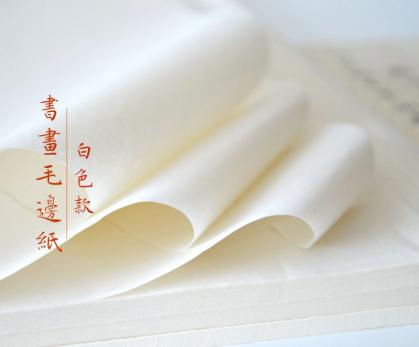 書畫毛邊紙
白色款